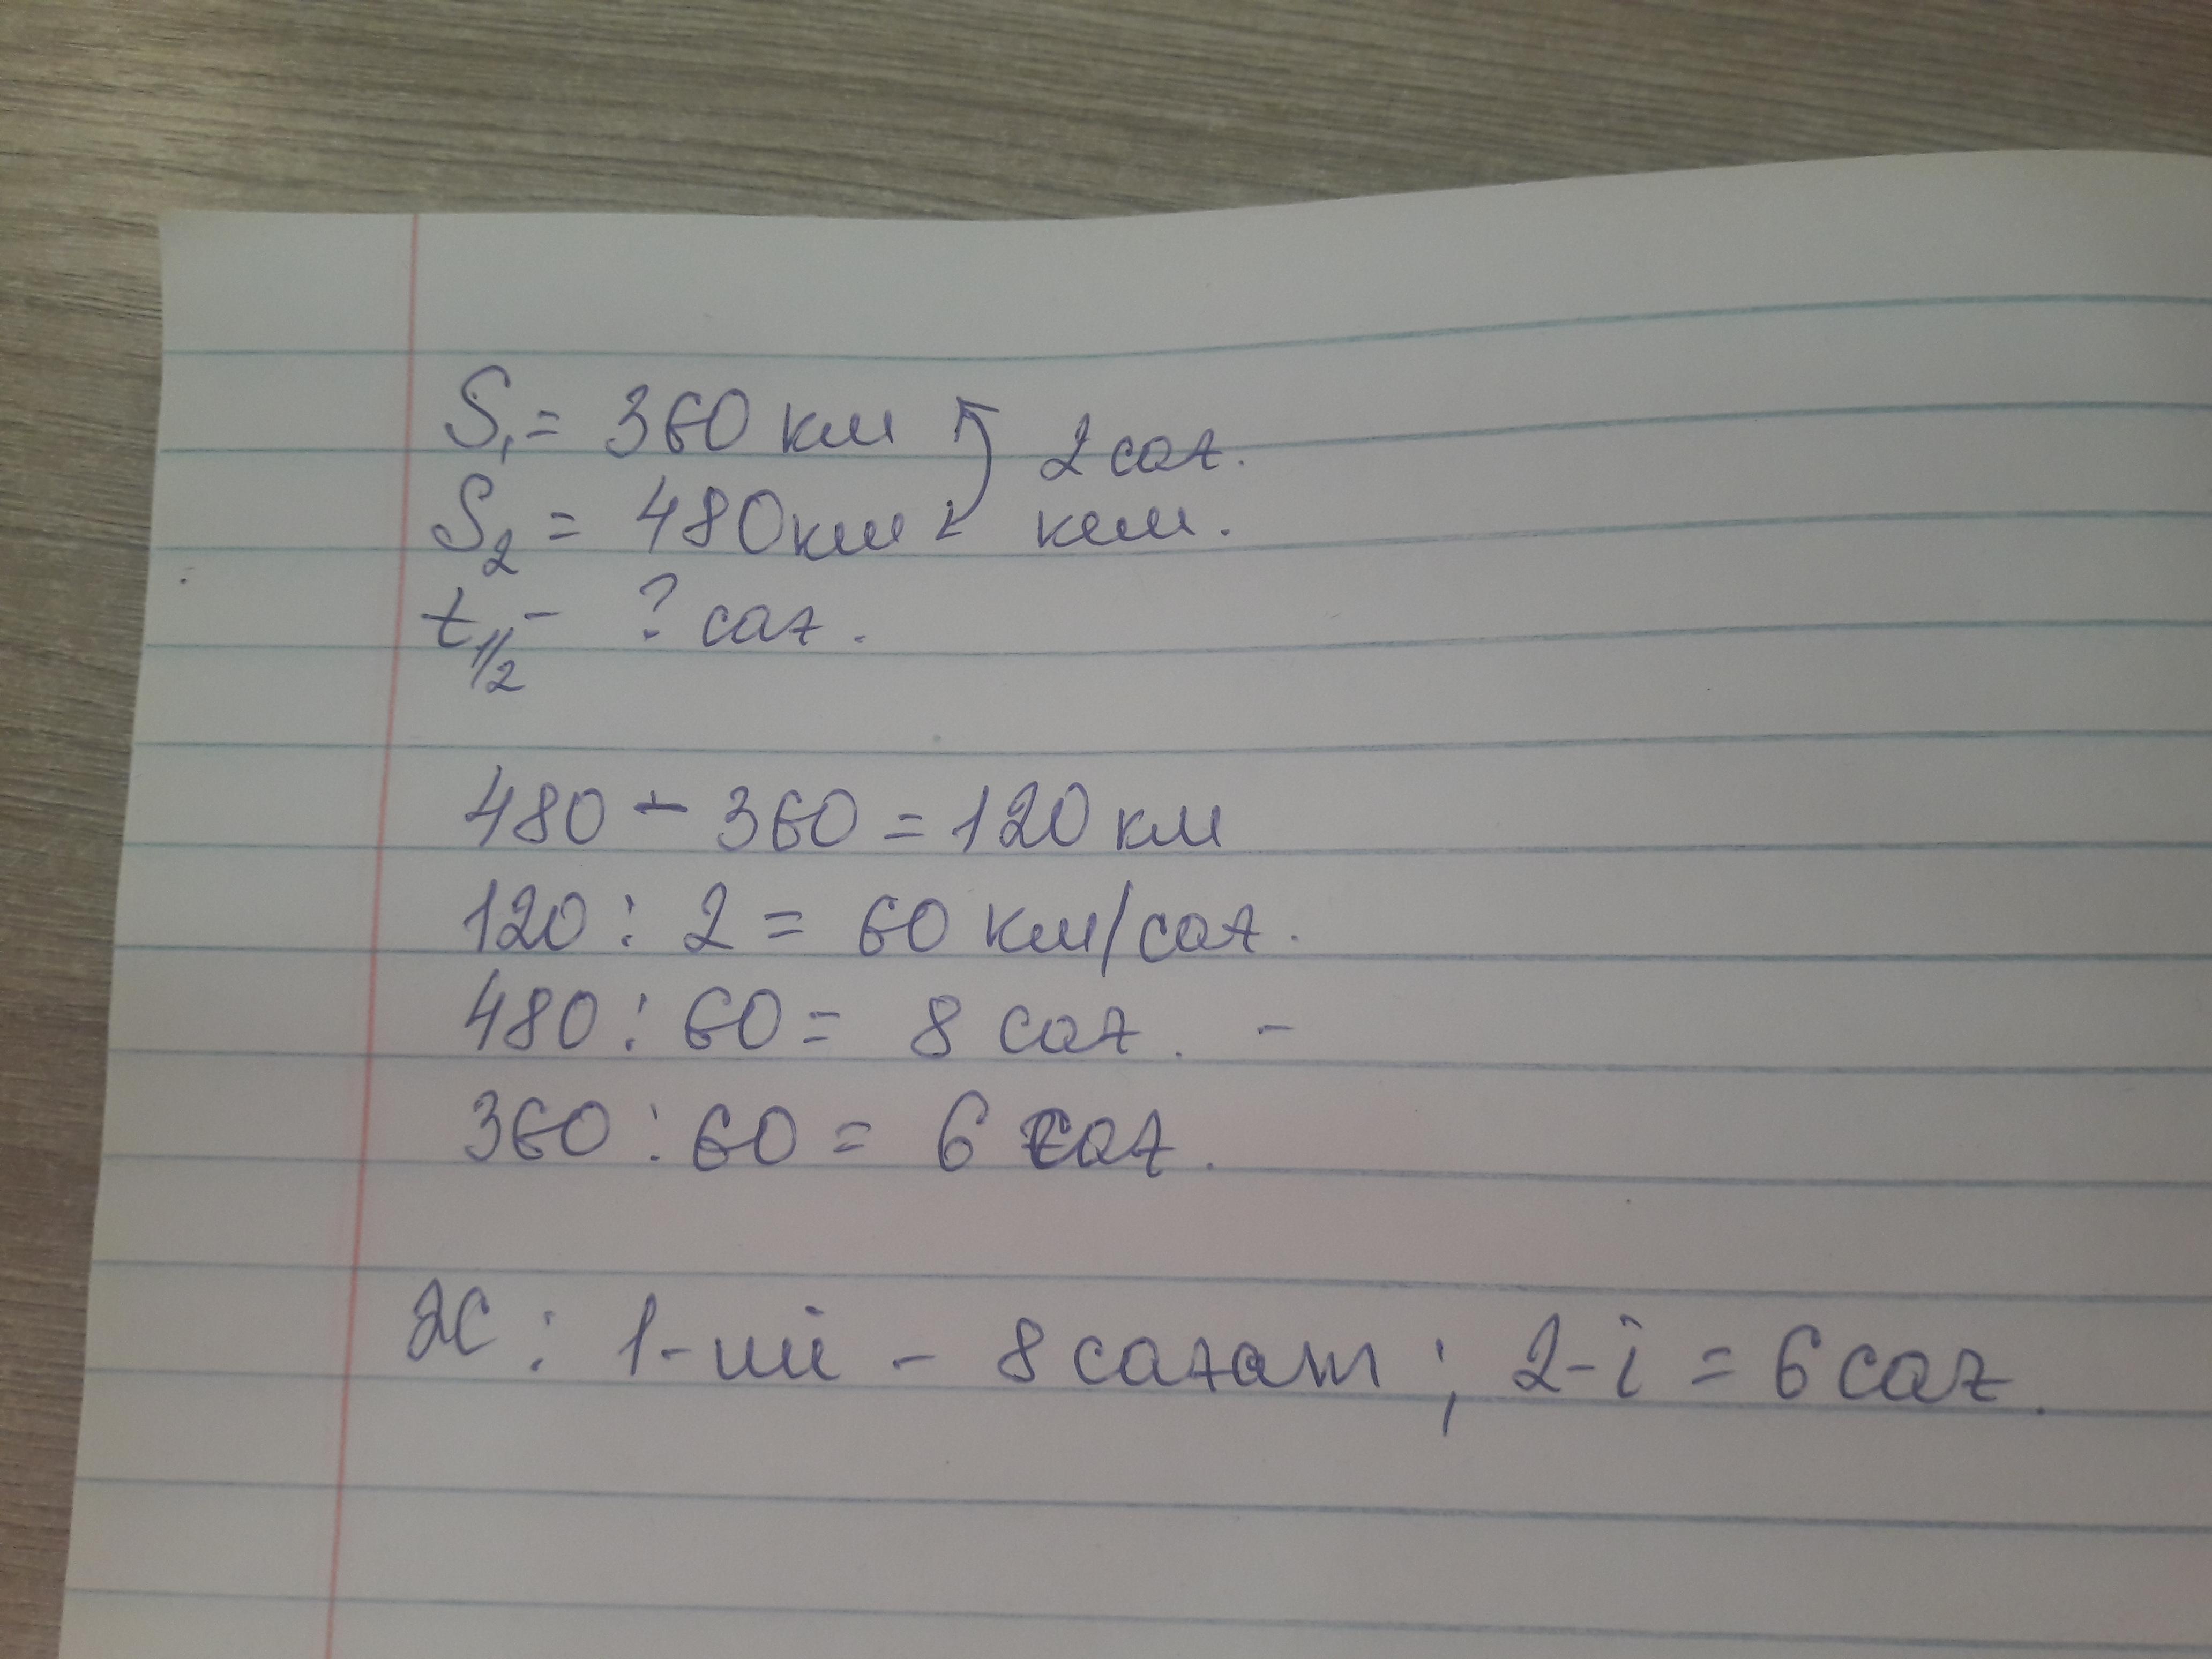 S₁ = 360 км 2 сағ.
S₂ = 480 км кем.
t₁/₂ - ? сағ.
480 - 360 = 120 км
120 : 2 = 60 км/сағ.
480 : 60 = 8 сағ. -
360 : 60 = 6 сағ.
Ж: 1-ші - 8 сағат; 2-і = 6 сағ.